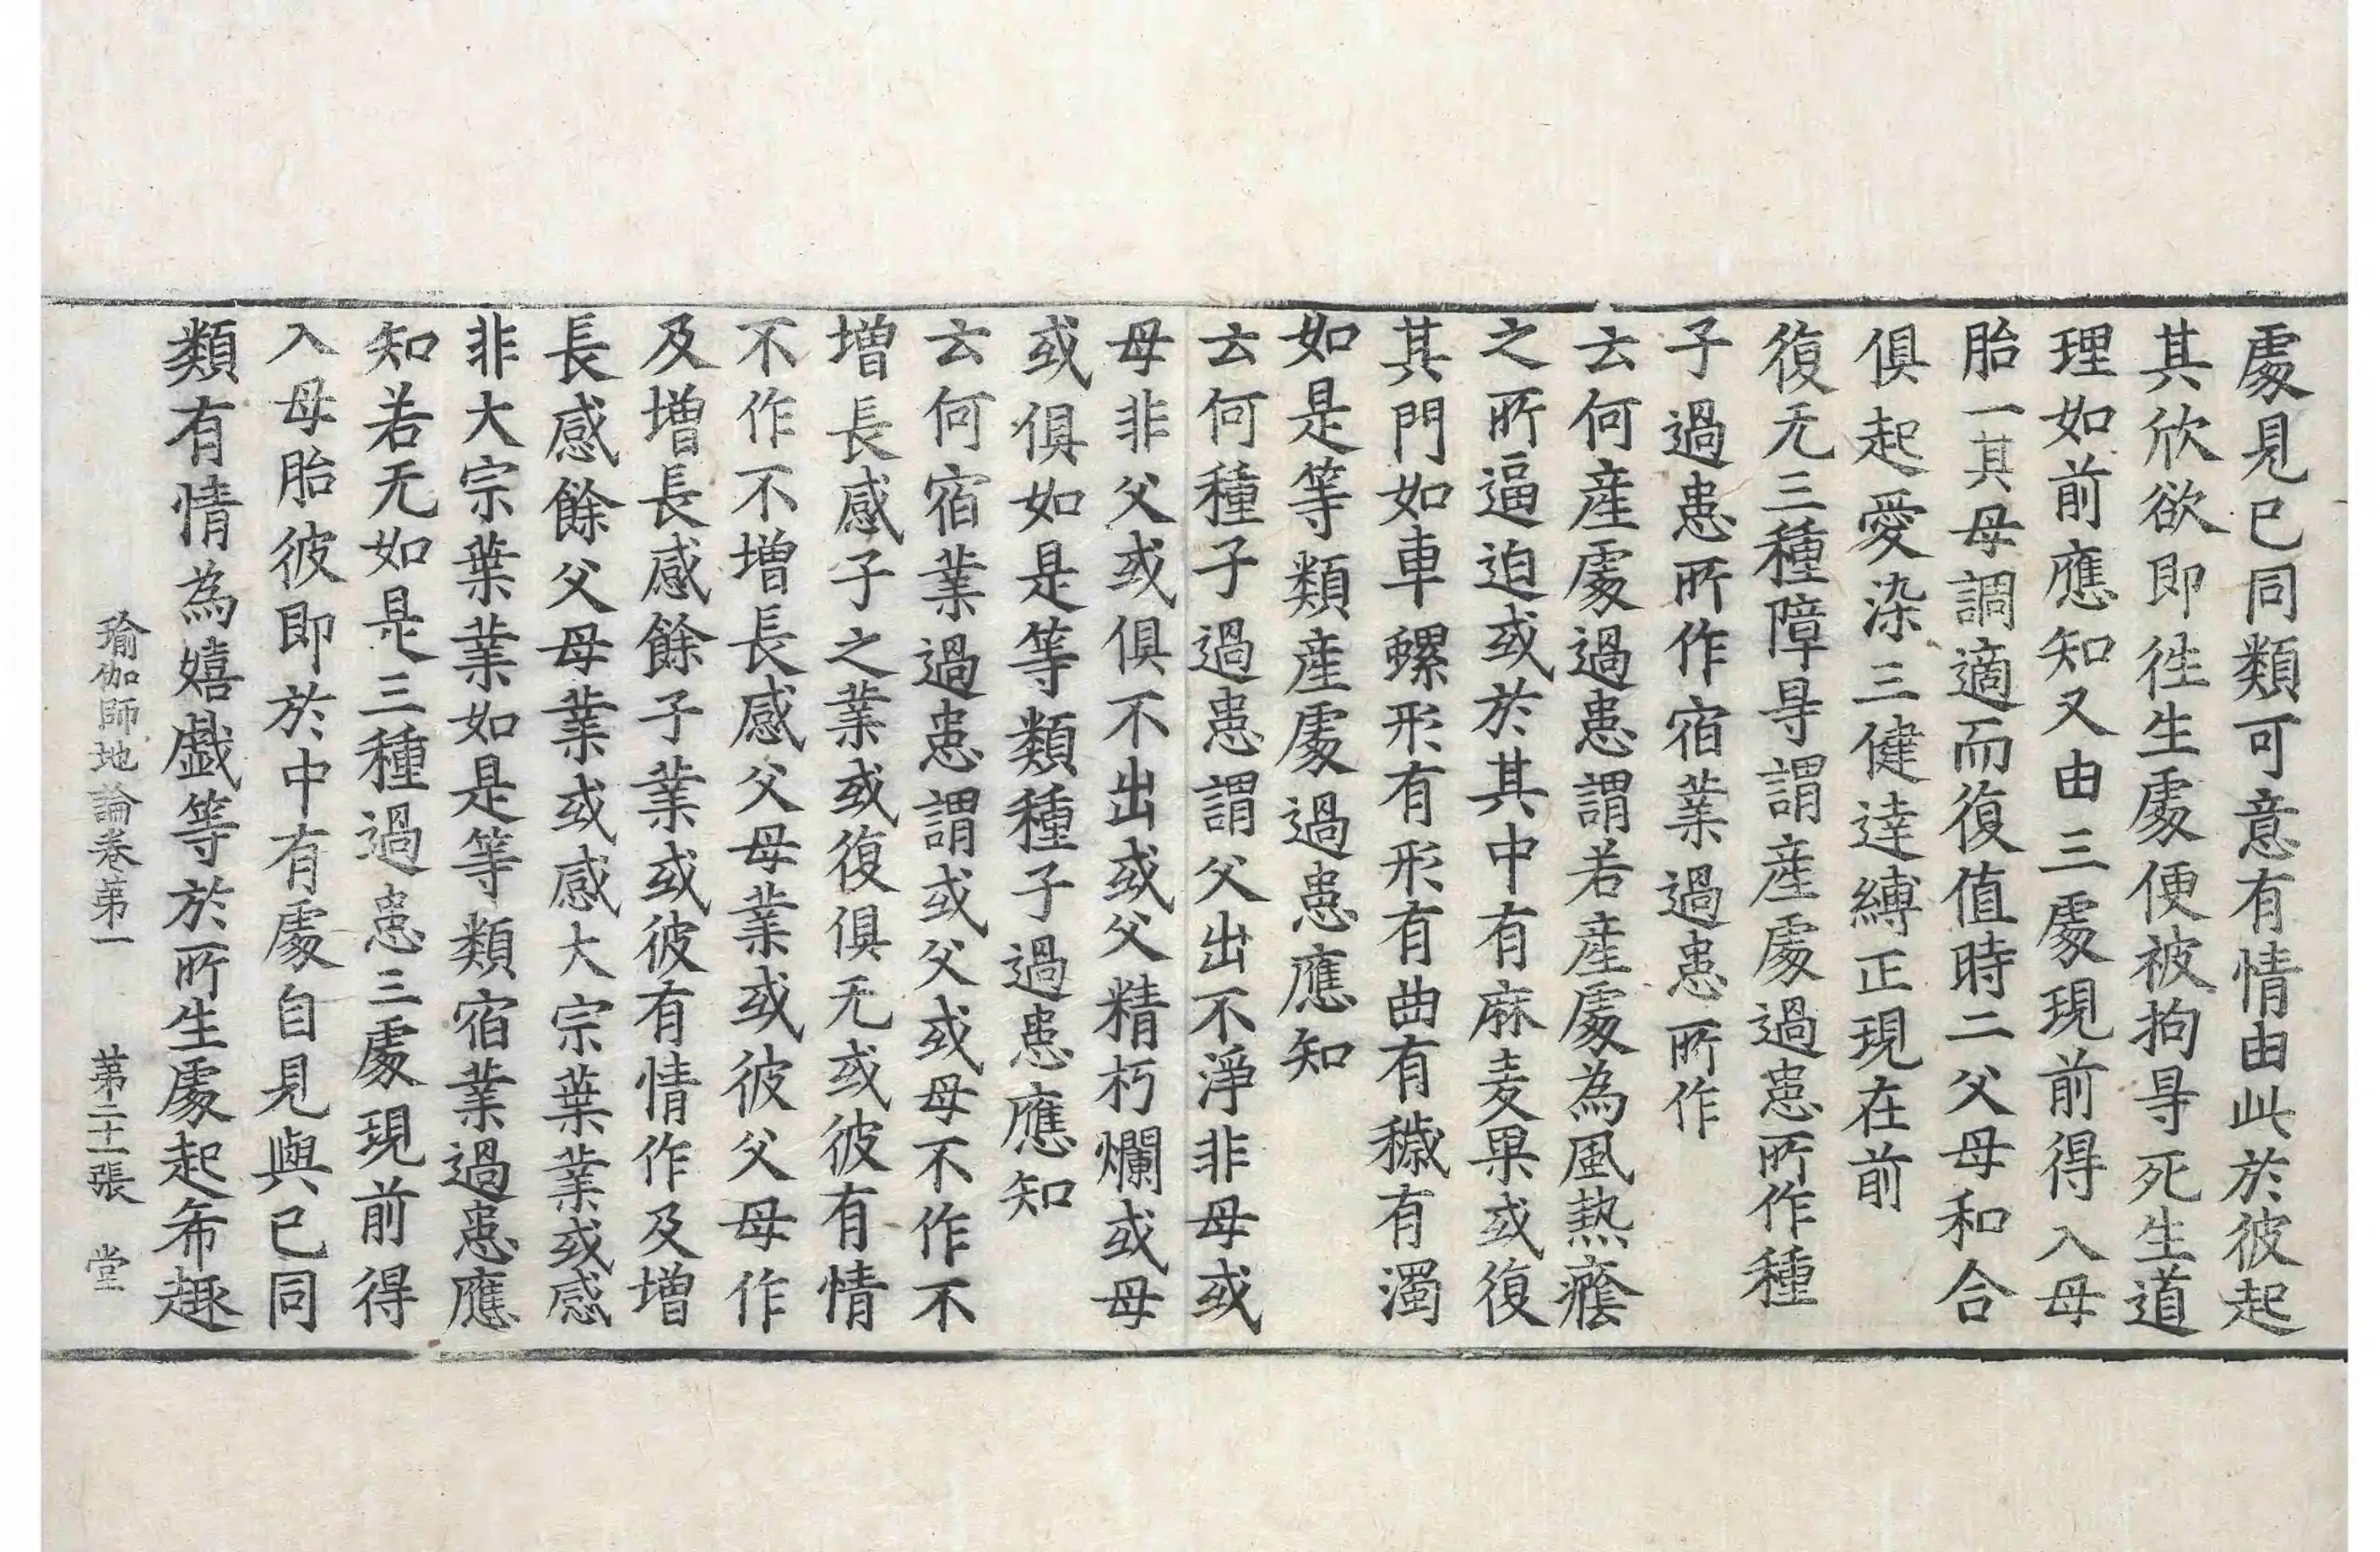 處見已同類可意有情由此於彼起
其欣欲即徃生處便被拘㝵死生道
理如前應知又由三處現前得入母
胎一其母調適而復值時二父母和合
俱起愛染三健達縛正現在前
復无三種障㝵謂産處過患所作種
子過患所作宿業過患所作
云何産處過患謂若産處為風熱癊
之所逼迫或於其中有麻麦果或復
其門如車螺形有形有曲有穢有濁
如是等類産處過患應知
云何種子過患謂父出不淨非母或
母非父或俱不出或父精朽爛或母
或俱如是等類種子過患應知
云何宿業過患謂或父或母不作不
增長感子之業或復俱无或彼有情
不作不增長感父母業或彼父母作
及增長感餘子業或彼有情作及增
長感餘父母業或感大宗葉業或感
非大宗葉業如是等類宿業過患應
知若无如是三種過患三處現前得
入母胎彼即於中有處自見與己同
類有情為嬉戯等於所生處起希趣
瑜伽師地論卷第一　第二十一張　堂